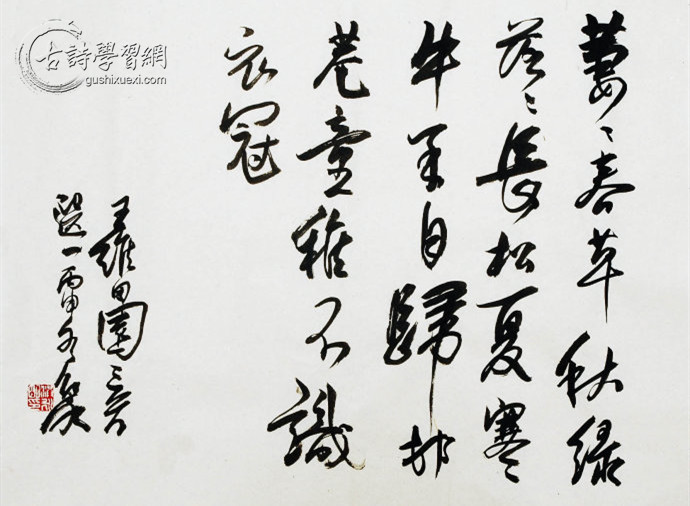 萋々春草秋綠
落々長松夏寒
牛羊自歸村
巷童稚不識
衣冠
王維田園
選一丙申冬
古詩學習網
gushixuexi.com